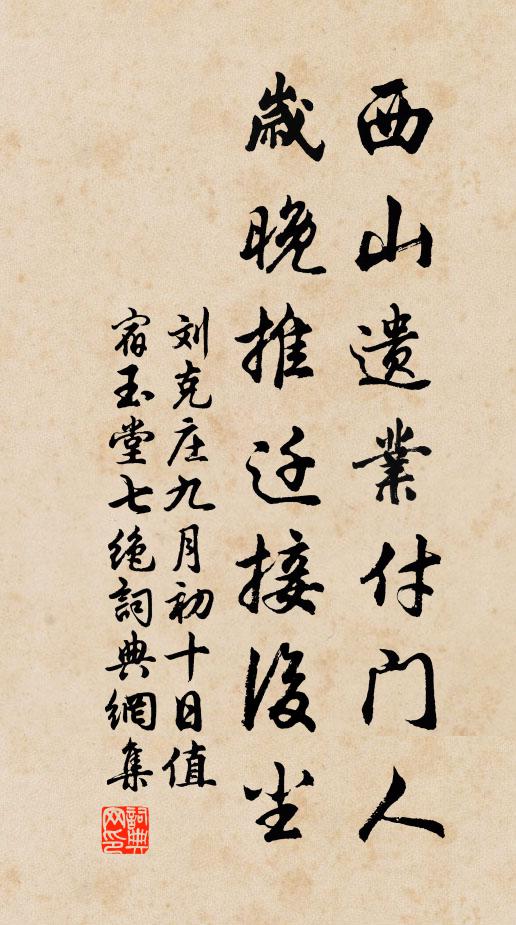 西山遗業付門人
歲晚推迁接後尘
刘克庄九月初十日值
宿玉堂七绝詞典網集
詞典网印